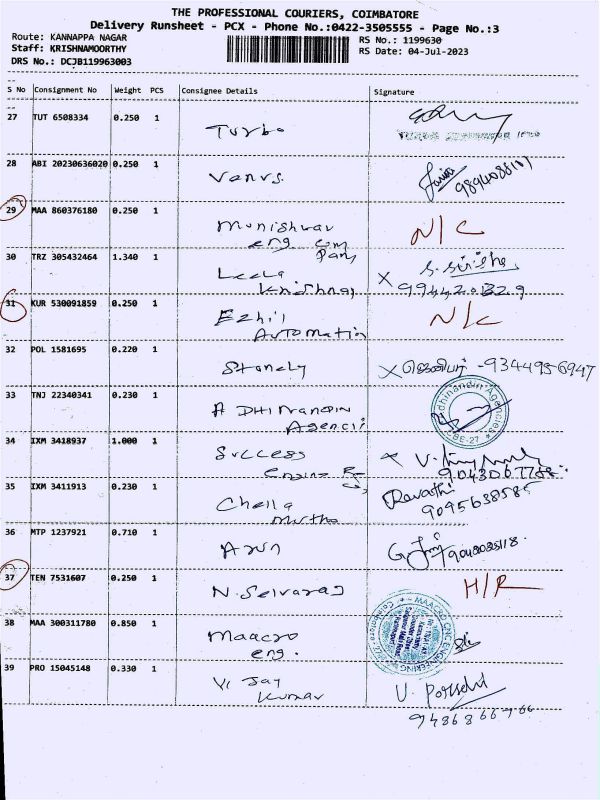 THE PROFESSIONAL COURIERS, COIMBATORE
Delivery Runsheet - PCX - Phone No.:0422-3505555 - Page No.:3
Route: KANNAPPA NAGAR RS No.: 1199630
Staff: KRISHNAMOORTHY RS Date: 04-Jul-2023
DRS No.: DCJB119963003
S No Consignment No Weight PCS Consignee Details Signature
27 TUT 6508334 0.250 1
Turbo
28 ABI 20230636020 0.250 1
Venus.
29 MAA 860376180 0.250 1
Munishwar N/C
eng com
pany
30 TRZ 305432464 1.340 1
Leela X S. Sirisha
Krishnan 9944201329
31 KUR 530091859 0.250 1
Ezhil N/C
Automation
32 POL 1581695 0.220 1
Stanely X ஜெனிபர் -9344956947
33 TNJ 22340341 0.230 1
ADHINANDIN
Agencii
34 IXM 3418937 1.000 1
Success
35 IXM 3411913 0.230 1
Chella Revathi
Murtha 9095638585
36 MTP 1237921 0.710 1
Arun
37 TEN 7531607 0.250 1
N. Selvaraj H/R
38 MAA 300311780 0.850 1
Maacro MAACRO CNC ENGINEERING
eng.
39 PRO 15045148 0.330 1
Vijay
Kumar